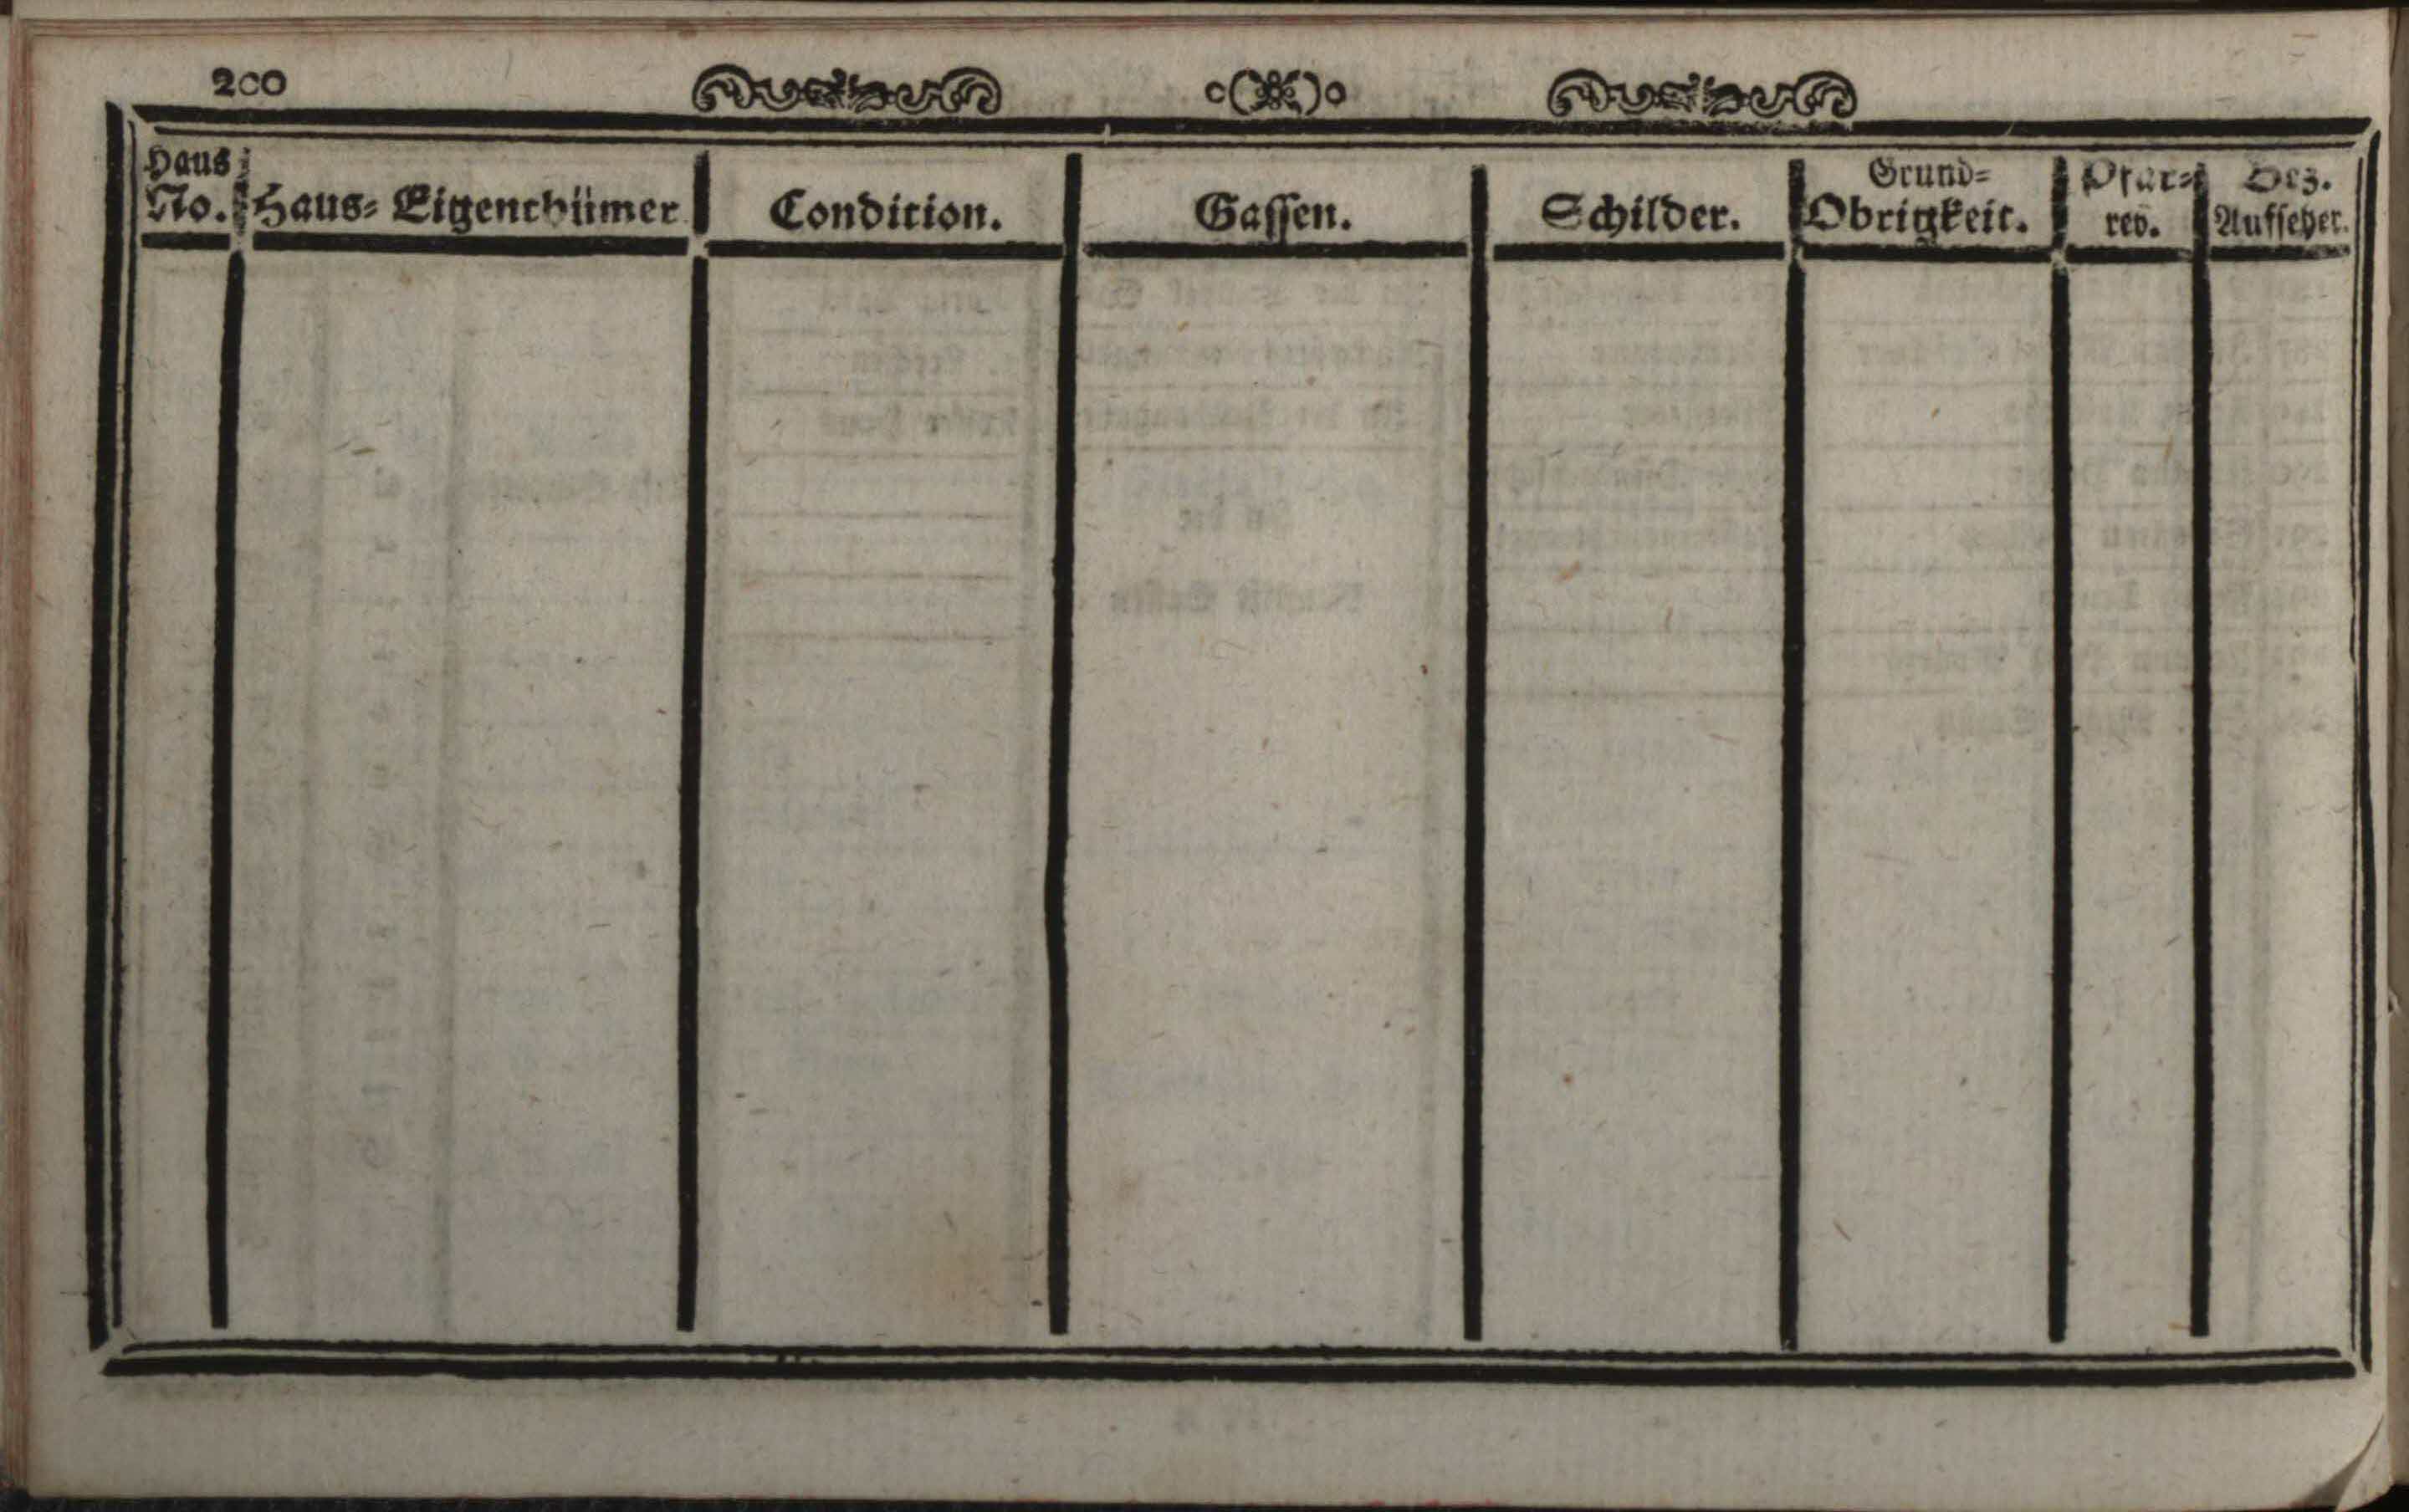 200
Haus No. Haus- Eigenthümer Condition. Gassen. Schilder. Grund- Obrigkeit. Pfar- rey. Bez. Aufseher.